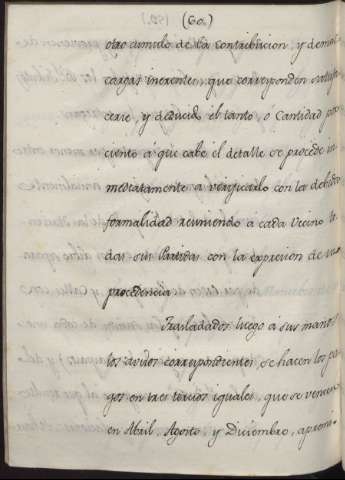 (60.)
otro cumulo de la contribucion, y demas
cargas inerentes, que corresponden satisfa-
cerse, y deducido el tanto, ó Cantidad por
ciento á que cabe el detalle se procede in-
mediatamente a verificarlo con la debida
formalidad reuniendo a cada Vecino to-
das sus Partidas con la expresion de su
procedencia.
Trasladados luego a sus manos
los avisos correspondientes, se hacen los pa-
gos en tres tercios iguales, que se vencen
en Abril, Agosto, y Diciembre, apremi-